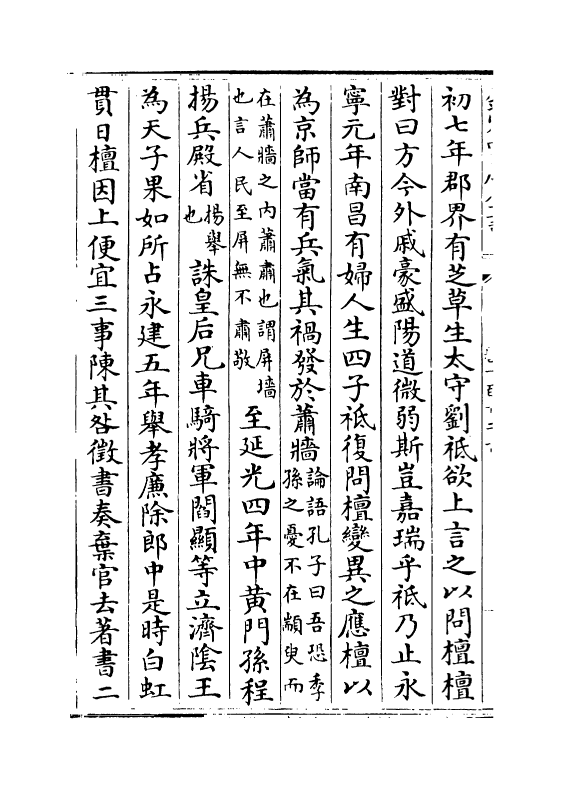 初七年郡界有芝草生太守劉祗欲上言之以問檀檀
對曰方今外戚豪盛陽道微弱斯豈嘉瑞乎祗乃止永
寧元年南昌有婦人生四子祗復問檀變異之應檀以
為京師當有兵氣其禍發於蕭牆論語孔子曰吾恐季孫之憂不在顓臾而
在蕭牆之内蕭肅也謂屏墻也言人民至屏無不肅敬至延光四年中黄門孫程
揚兵殿省揚舉也誅皇后兄車騎將軍閻顯等立濟陰王
為天子果如所占永建五年舉孝廉除郎中是時白虹
貫日檀因上便宜三事陳其咎徵書奏棄官去著書二